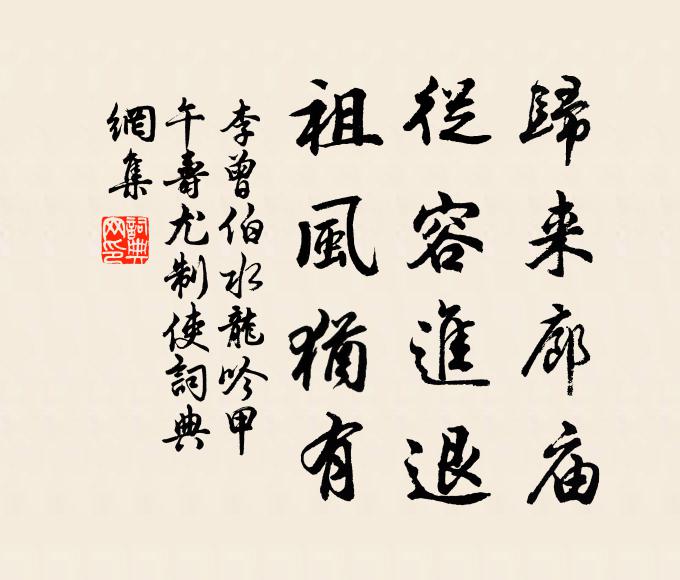 歸来廊庙
從容進退
祖風猶有
李曾伯水龍吟甲
午壽尤制使詞典
網集
詞典
网印